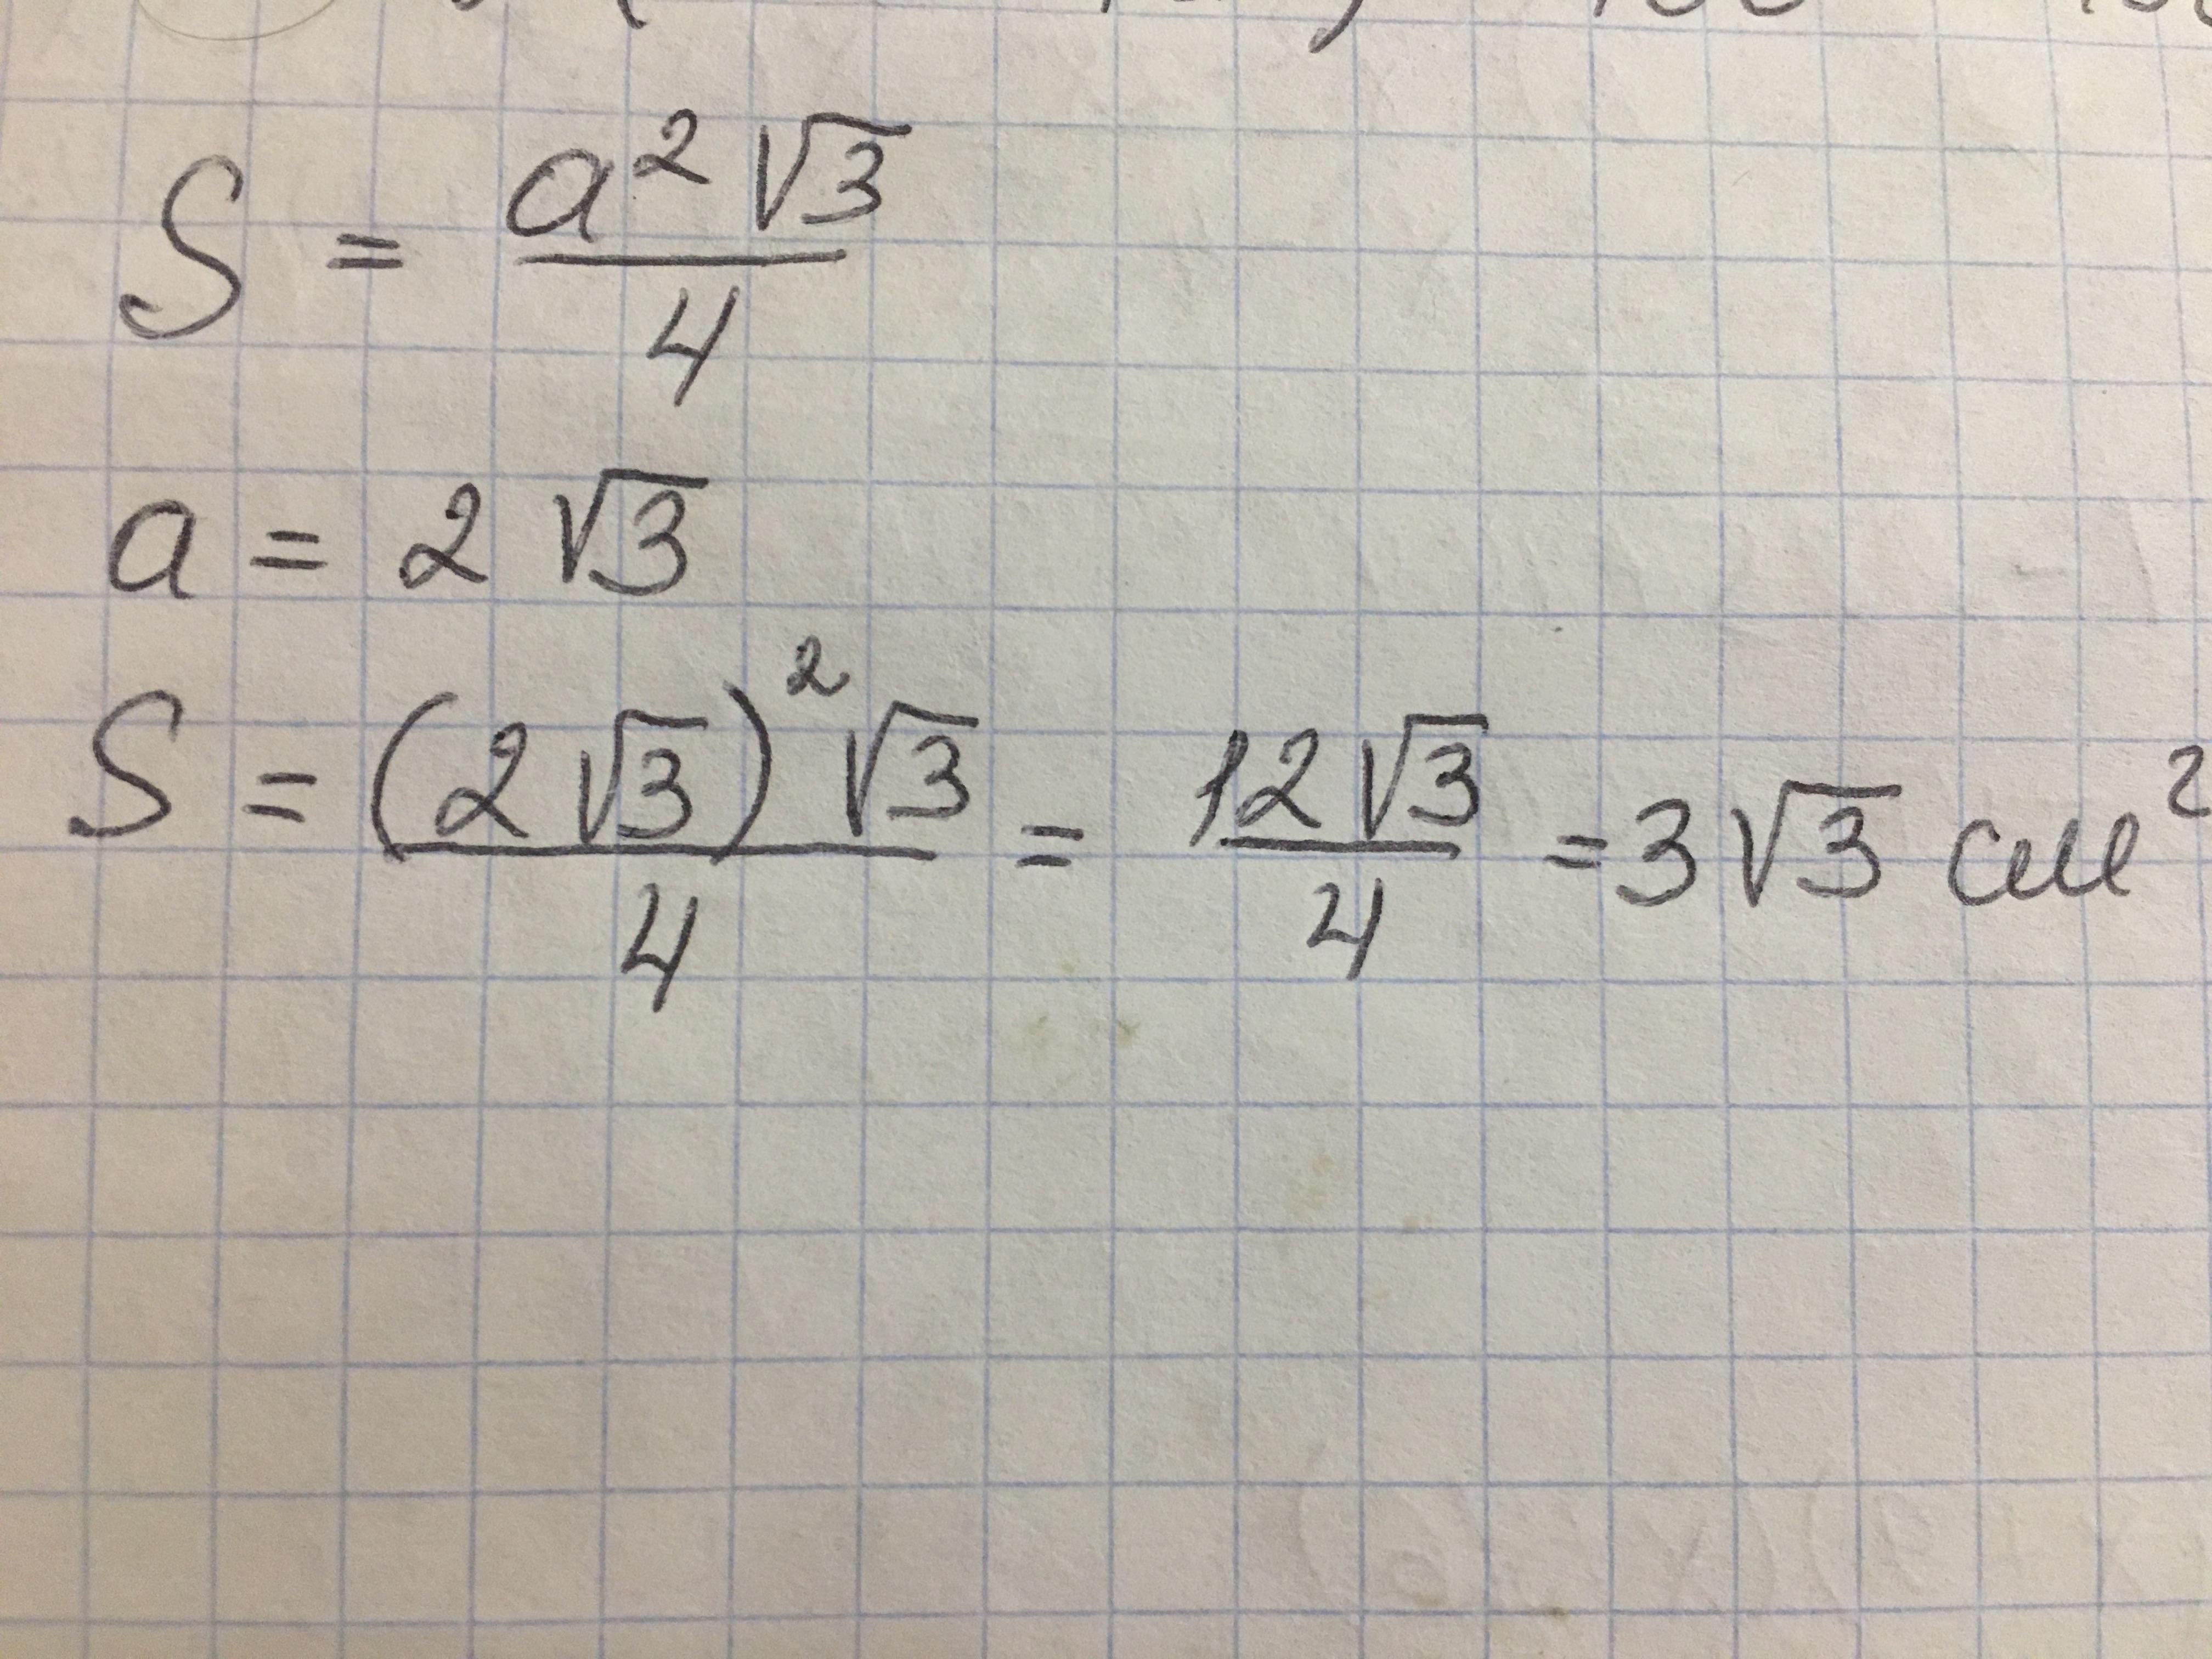 S = a²√3 / 4
a = 2√3
S = (2√3)²√3 / 4 = 12√3 / 4 = 3√3 см²